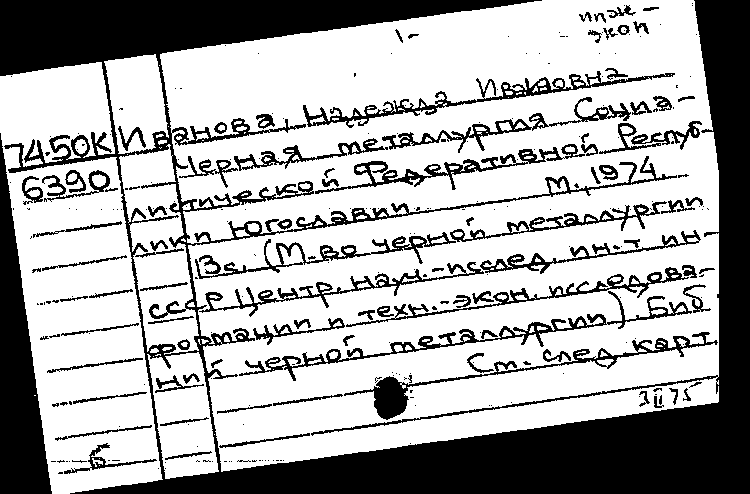 1-
инж-
экон
Иванова, Надежда Ивановна
74-50К
Черная металлургия Социа-
6390
листической Федеративной Респуб-
лики Югославии. М., 1974.
13с. (М-во черной металлургии
СССР Центр. науч.-исслед. ин-т ин-
формации и техн.-экон. исследова-
ний черной металлургии). Биб
См. след. карт.
3 II 75
б